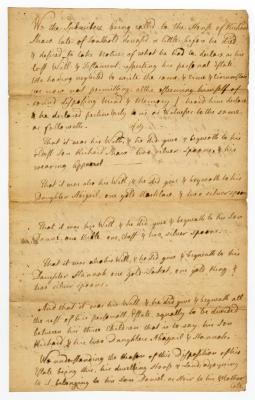 We the Subscribers being called to the House of Richard
Hunt late of Southold bought a little before he Died
& desired to take Notice of what he had to declare as his
last Will & Testament respecting his personal Estate
He having neglected to write the same, & time & Circumstances
not now permitting, altho affirming himself of
sound disposing Mind & Memory I heard him declare
& he declared particularly to us as Witnesses to the same,
as followeth.
That it was his Will, & he did give & bequeath to his
Son Richard two silver spoons & his
wearing Apparel
That it was also his Will, & he did give & bequeath to his
Daughter Abigail, one gold Necklace, & two silver spoons
That it was his Will & he did give & bequeath to his Son
Daniel, one & two silver spoons.
That it was also his Will, & he did give & bequeath to his
Daughter Hannah one gold Locket, one gold Ring &
two silver spoons.
And that it was his Will & he did give & bequeath all
the rest of his personal Estate, equally to be divided
between his three Children that is to say his Son
Richard & his two Daughters Abigail & Hannah.
We understanding the Reason of this Disposition of his
Estate being this, his dwelling House & Land adjoyning
to it, belonging to his Son Daniel as Heir to his Mother